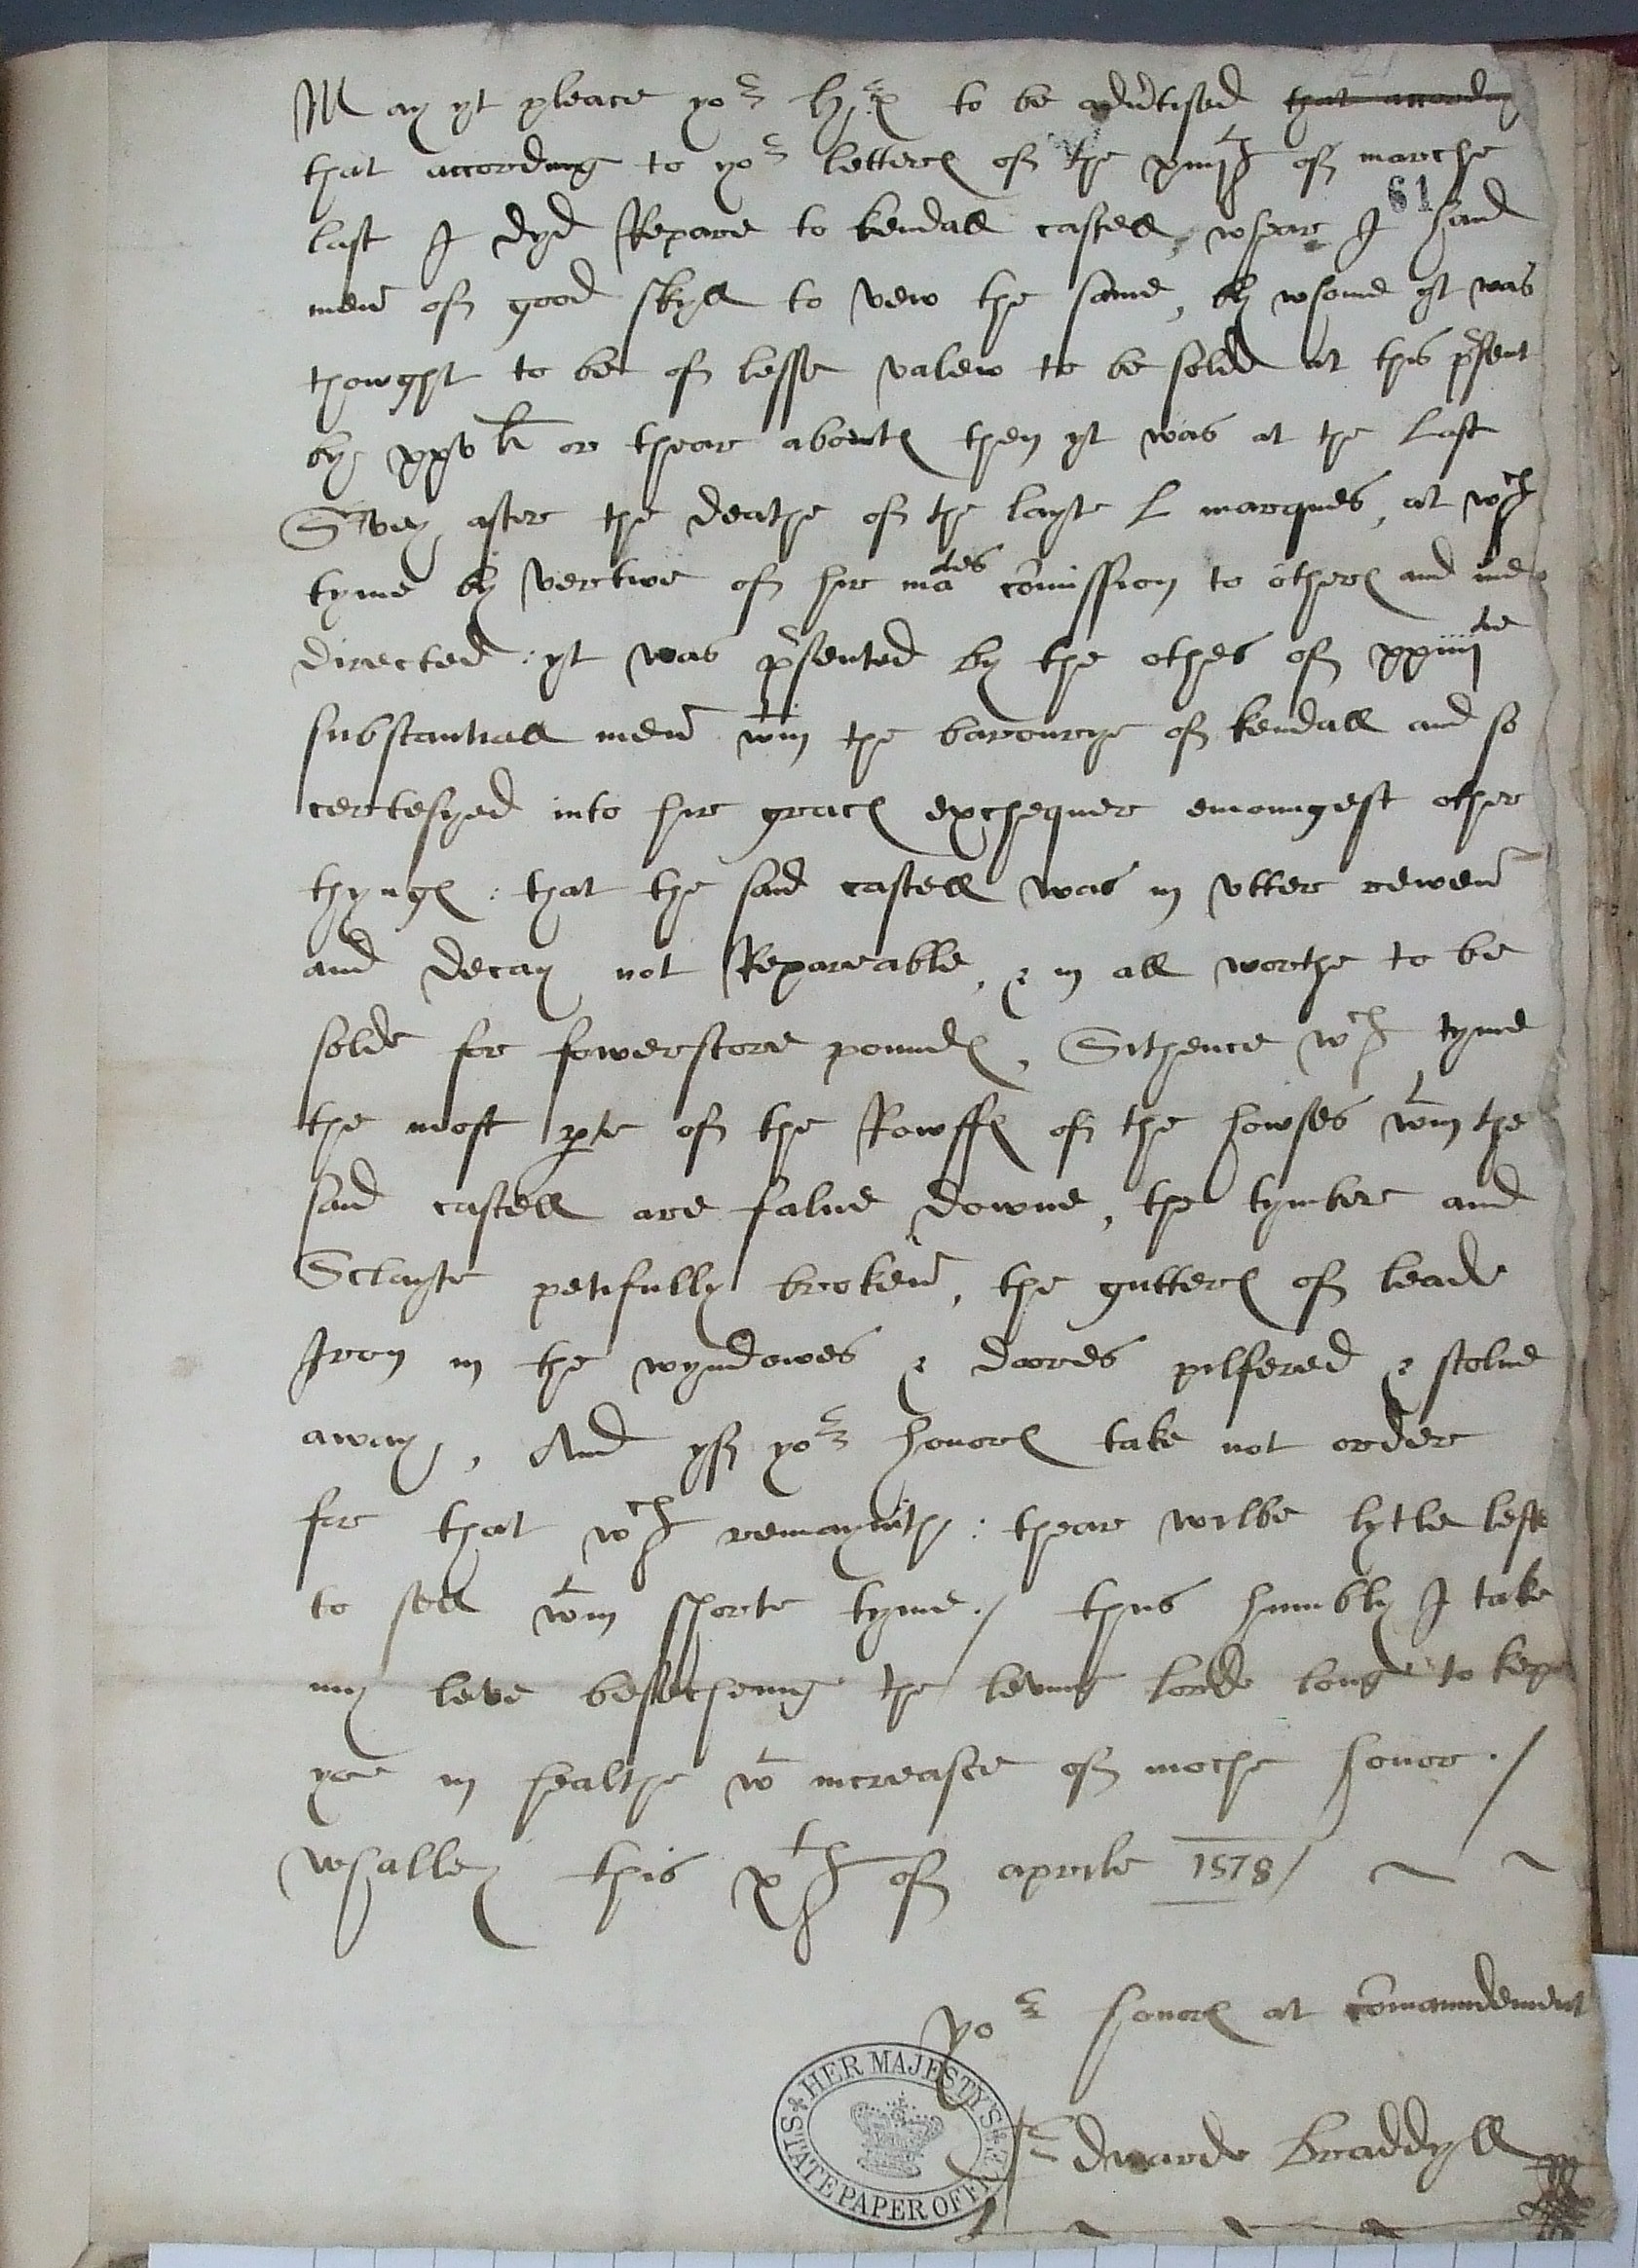 May yt pleace yor Lps to be adv'tised that according
that according to yor letters of the xiiijth of marche
61
last I dyd Repare to kendall castell, whear I had
men of good skyll to vew the same, by whome yt was
thowght to be of lesse valew to be solde at this p'sent
by xxv li or thear abouts then yt was at the last
S'vey after the deathe of the layte L marques, at wch
tyme by vertwe of hir mates com'ission to others and me
directed : yt was p'sented by the othes of xxiiijtie
substantiall men wtin the baronrye of kendall and so
certefyed into hir graces exchequer emoungest other
thyngs : that the said castell was in vtter rewen
and decay not Repareable, & in all worthe to be
solde for fowerscore pounds, Sithence wch tyme
the most p'te of the Rowffs of the howses wtin the
said castell are falne downe, the tymber and
Sclayte petifully broken, the gutters of leade
Iron in the wyndowes & doores pilfered & stolne
away, And yf yor honors take not order
for that wch remaynith : thear wilbe lytle lefte
to sell wtin shorte tyme ./ thus humbly I take
my leve beseching the leving lorde long to kepe
yow in healthe wt increasce of moche honor ./
whalley this xth of aprile 1578/
Yor honors at com'aundement
Edwarde Braddyll
HER MAJESTY'S STATE PAPER OFFICE